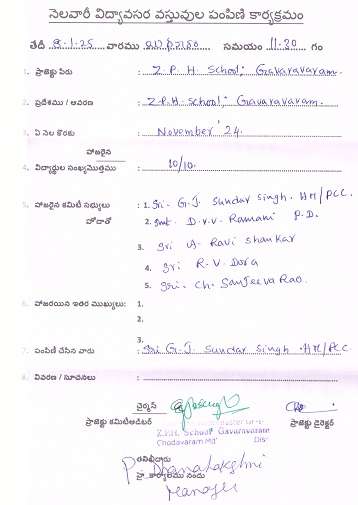 నెలవారీ విద్యావసర వస్తువుల పంపిణి కార్యక్రమం
తేదీ 8-1-25 వారము బుధవారం సమయం 11-30 గం
1. ప్రాజెక్టు పేరు : Z.P.H. School; Gavaravaram.
2. ప్రదేశము / ఆవరణ : Z.P.H. School; Gavaravaram.
3. ఏ నెల కొరకు : November '24.
హాజరైన
4. విద్యార్థుల సంఖ్య/మొత్తము : 10/10.
5. హాజరైన కమిటీ సభ్యులు : 1. Sri. G.J. Sundar Singh. HM/PCC.
హోదాతో 2. Smt. D.V.V. Ramani P.D.
3. Sri A. Ravi Shankar
4. Sri R.V. Dora
5. Sri. Ch. Sanjeeva Rao.
6. హాజరయిన ఇతర ముఖ్యులు: 1.
2.
3.
7. పంపిణి చేసిన వారు : Sri G.J. Sundar Singh. HM/PCC
8. వివరణ / సూచనలు :
చైర్మన్
ప్రాజెక్టు కమిటీ ప్రాజెక్టు డైరెక్టర్
Z.P.H. School Gavaravaram
Chodavaram Md Dist
తనిఖీదారు
P. Dhanalakshmi
Manager